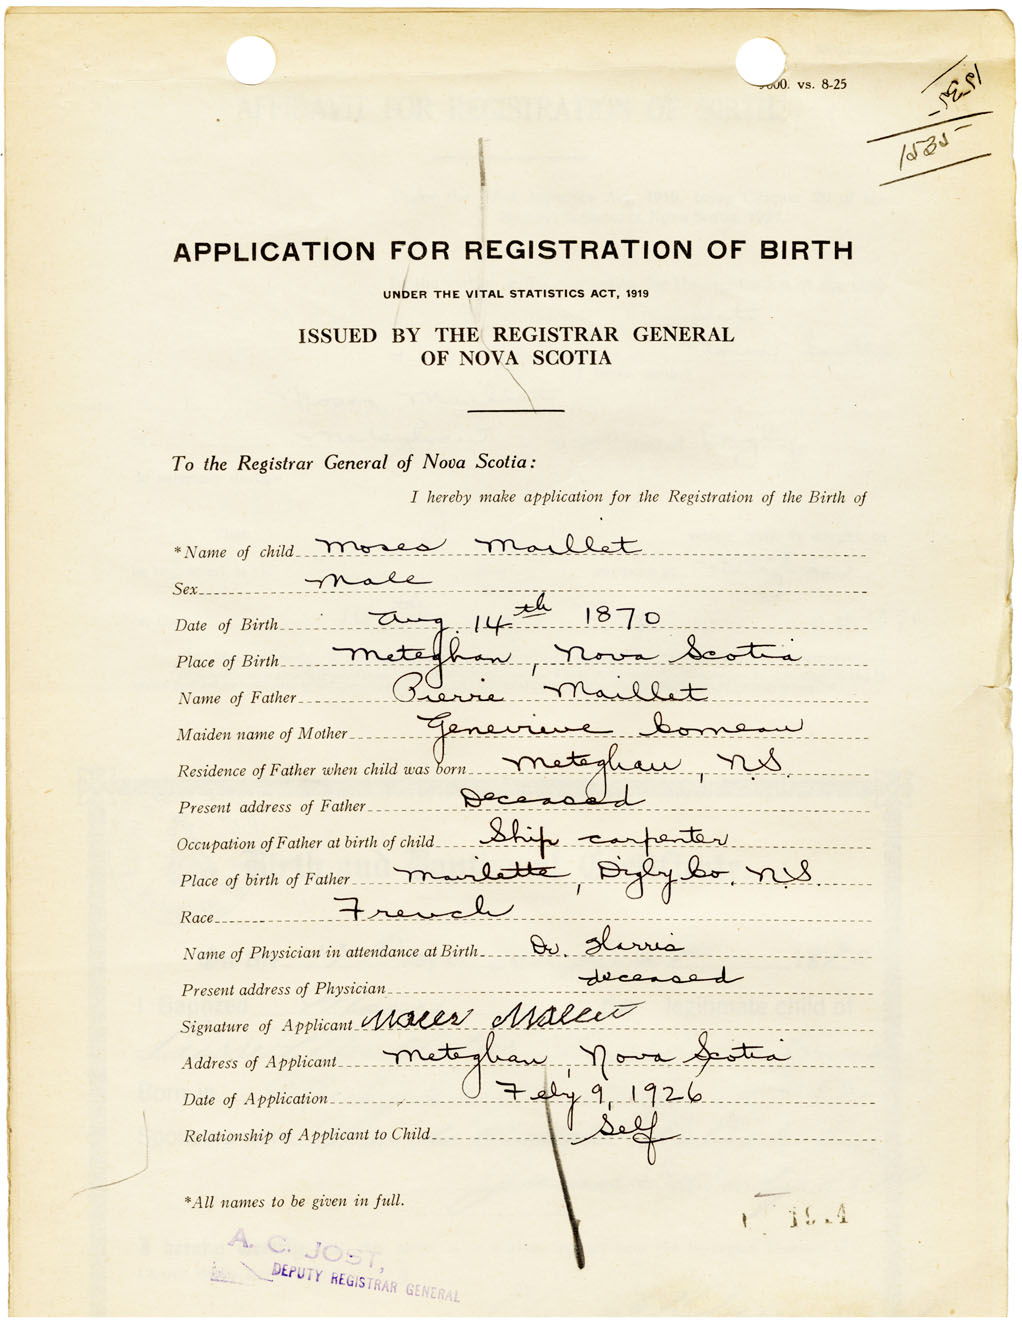 000. vs. 8-25
1535
APPLICATION FOR REGISTRATION OF BIRTH
UNDER THE VITAL STATISTICS ACT, 1919
ISSUED BY THE REGISTRAR GENERAL
OF NOVA SCOTIA
To the Registrar General of Nova Scotia:
I hereby make application for the Registration of the Birth of
*Name of child Moses Maillet
Sex Male
Date of Birth Aug. 14th 1870
Place of Birth Meteghan, Nova Scotia
Name of Father Pierre Maillet
Maiden name of Mother Genevieve Comeau
Residence of Father when child was born Meteghan, N.S.
Present address of Father Deceased
Occupation of Father at birth of child Ship carpenter
Place of birth of Father Digby Co. N.S.
Race French
Name of Physician in attendance at Birth Dr. Harris
Present address of Physician deceased
Signature of Applicant
Address of Applicant Meteghan, Nova Scotia
Date of Application Feby 9, 1926
Relationship of Applicant to Child Self
*All names to be given in full.
A. C. JOST,
DEPUTY REGISTRAR GENERAL